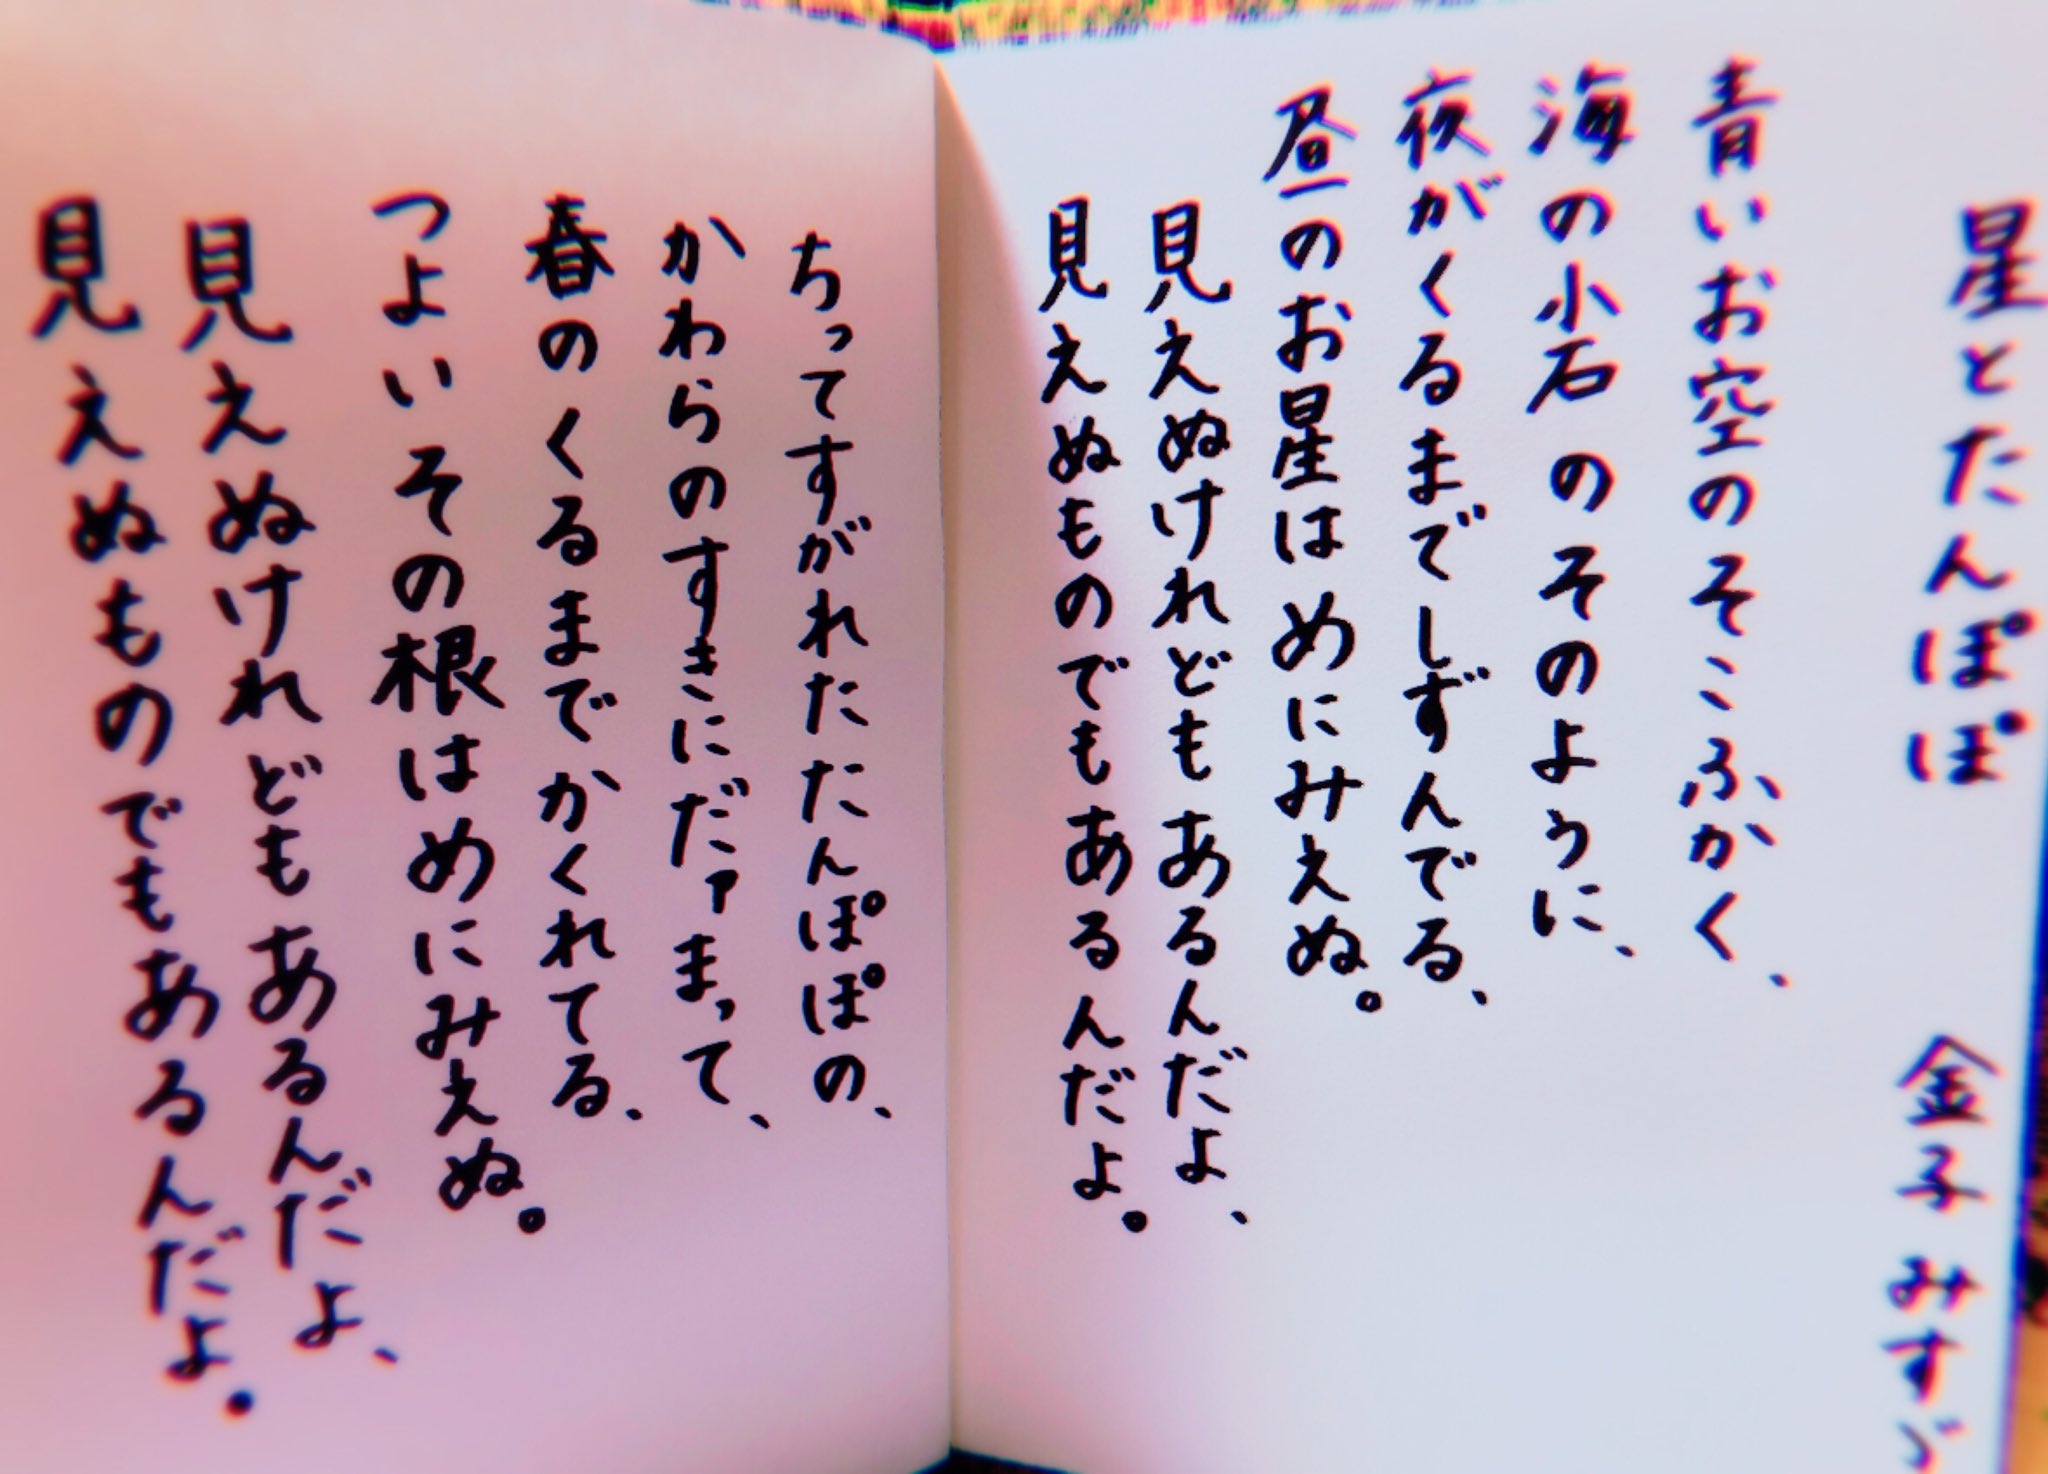 星とたんぽぽ 金子みすゞ
青いお空のそこふかく、
海の小石のそのように、
夜がくるまでしずんでる、
昼のお星はめにみえぬ。
見えぬけれどもあるんだよ、
見えぬものでもあるんだよ。
ちってすがれたたんぽぽの、
かわらのすきにだァまって、
春のくるまでかくれてる、
つよいその根はめにみえぬ。
見えぬけれどもあるんだよ、
見えぬものでもあるんだよ。